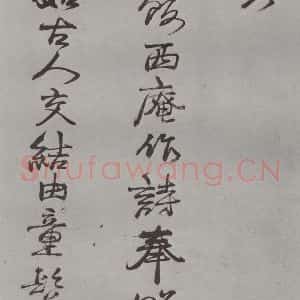 西庵作詩奉
古人交結由童
Shufawang.CN